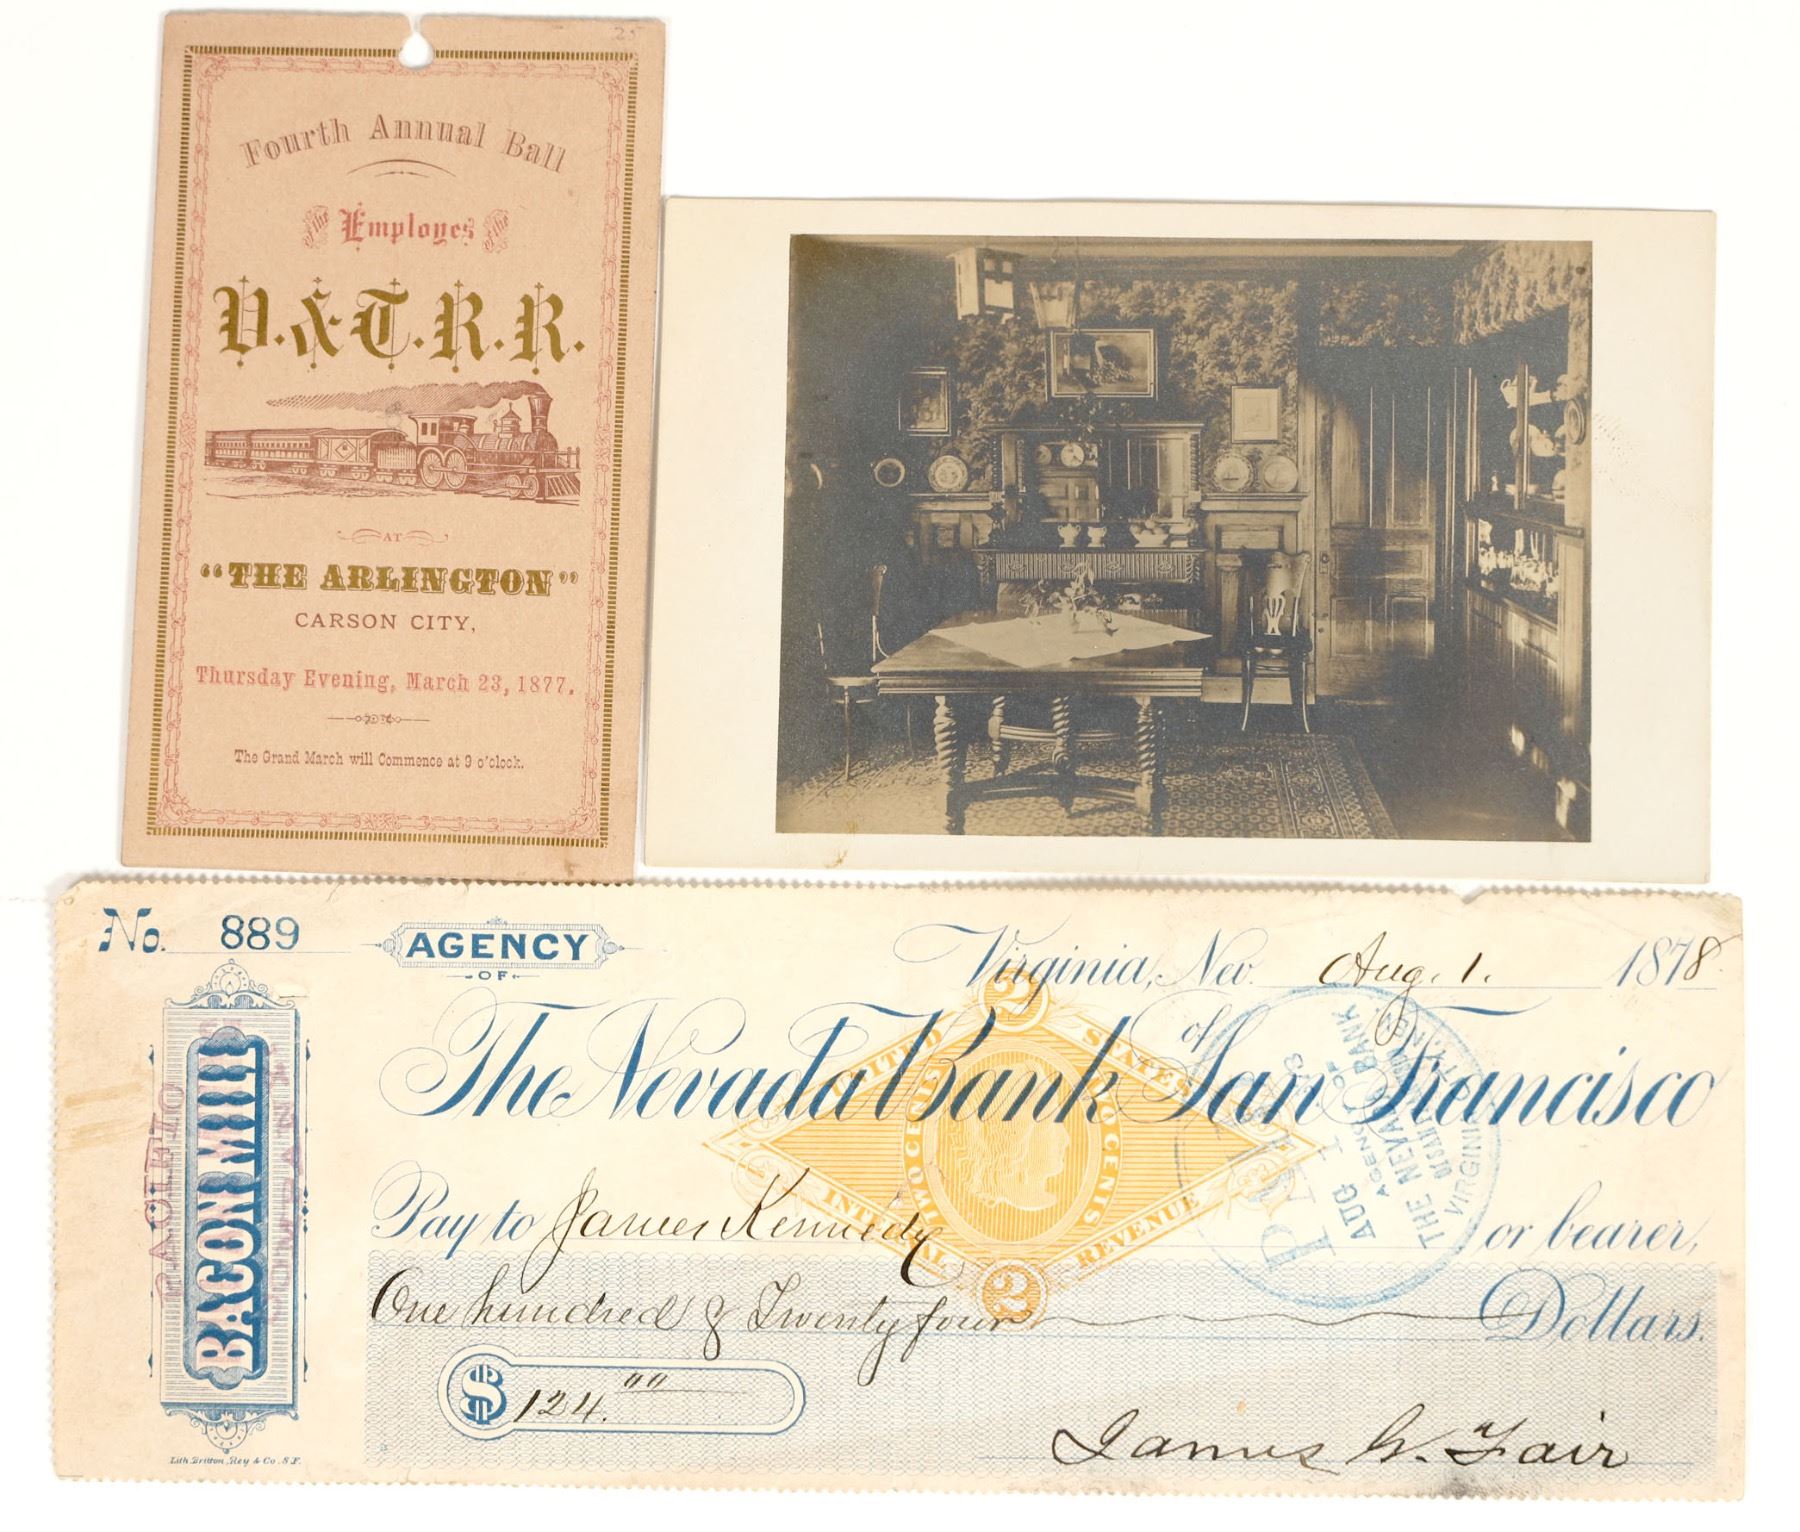 25
Fourth Annual Ball
of the Employes of the
V. & T. R. R.
AT
"THE ARLINGTON"
CARSON CITY,
Thursday Evening, March 23, 1877.
The Grand March will Commence at 9 o'clock.
No. 889
AGENCY
OF
Virginia, Nev. Aug. 1. 1878
The Nevada Bank of San Francisco
Pay to James Kennedy or bearer,
One hundred & Twenty four Dollars.
$ 124.00
James G. Fair
BACON MILL
Lith. Britton, Rey & Co. S.F.
UNITED STATES
INTERNAL REVENUE
TWO CENTS
TWO CENTS
2
2
PAID
AUG 1
AGENCY OF
THE NEVADA BANK
VIRGINIA